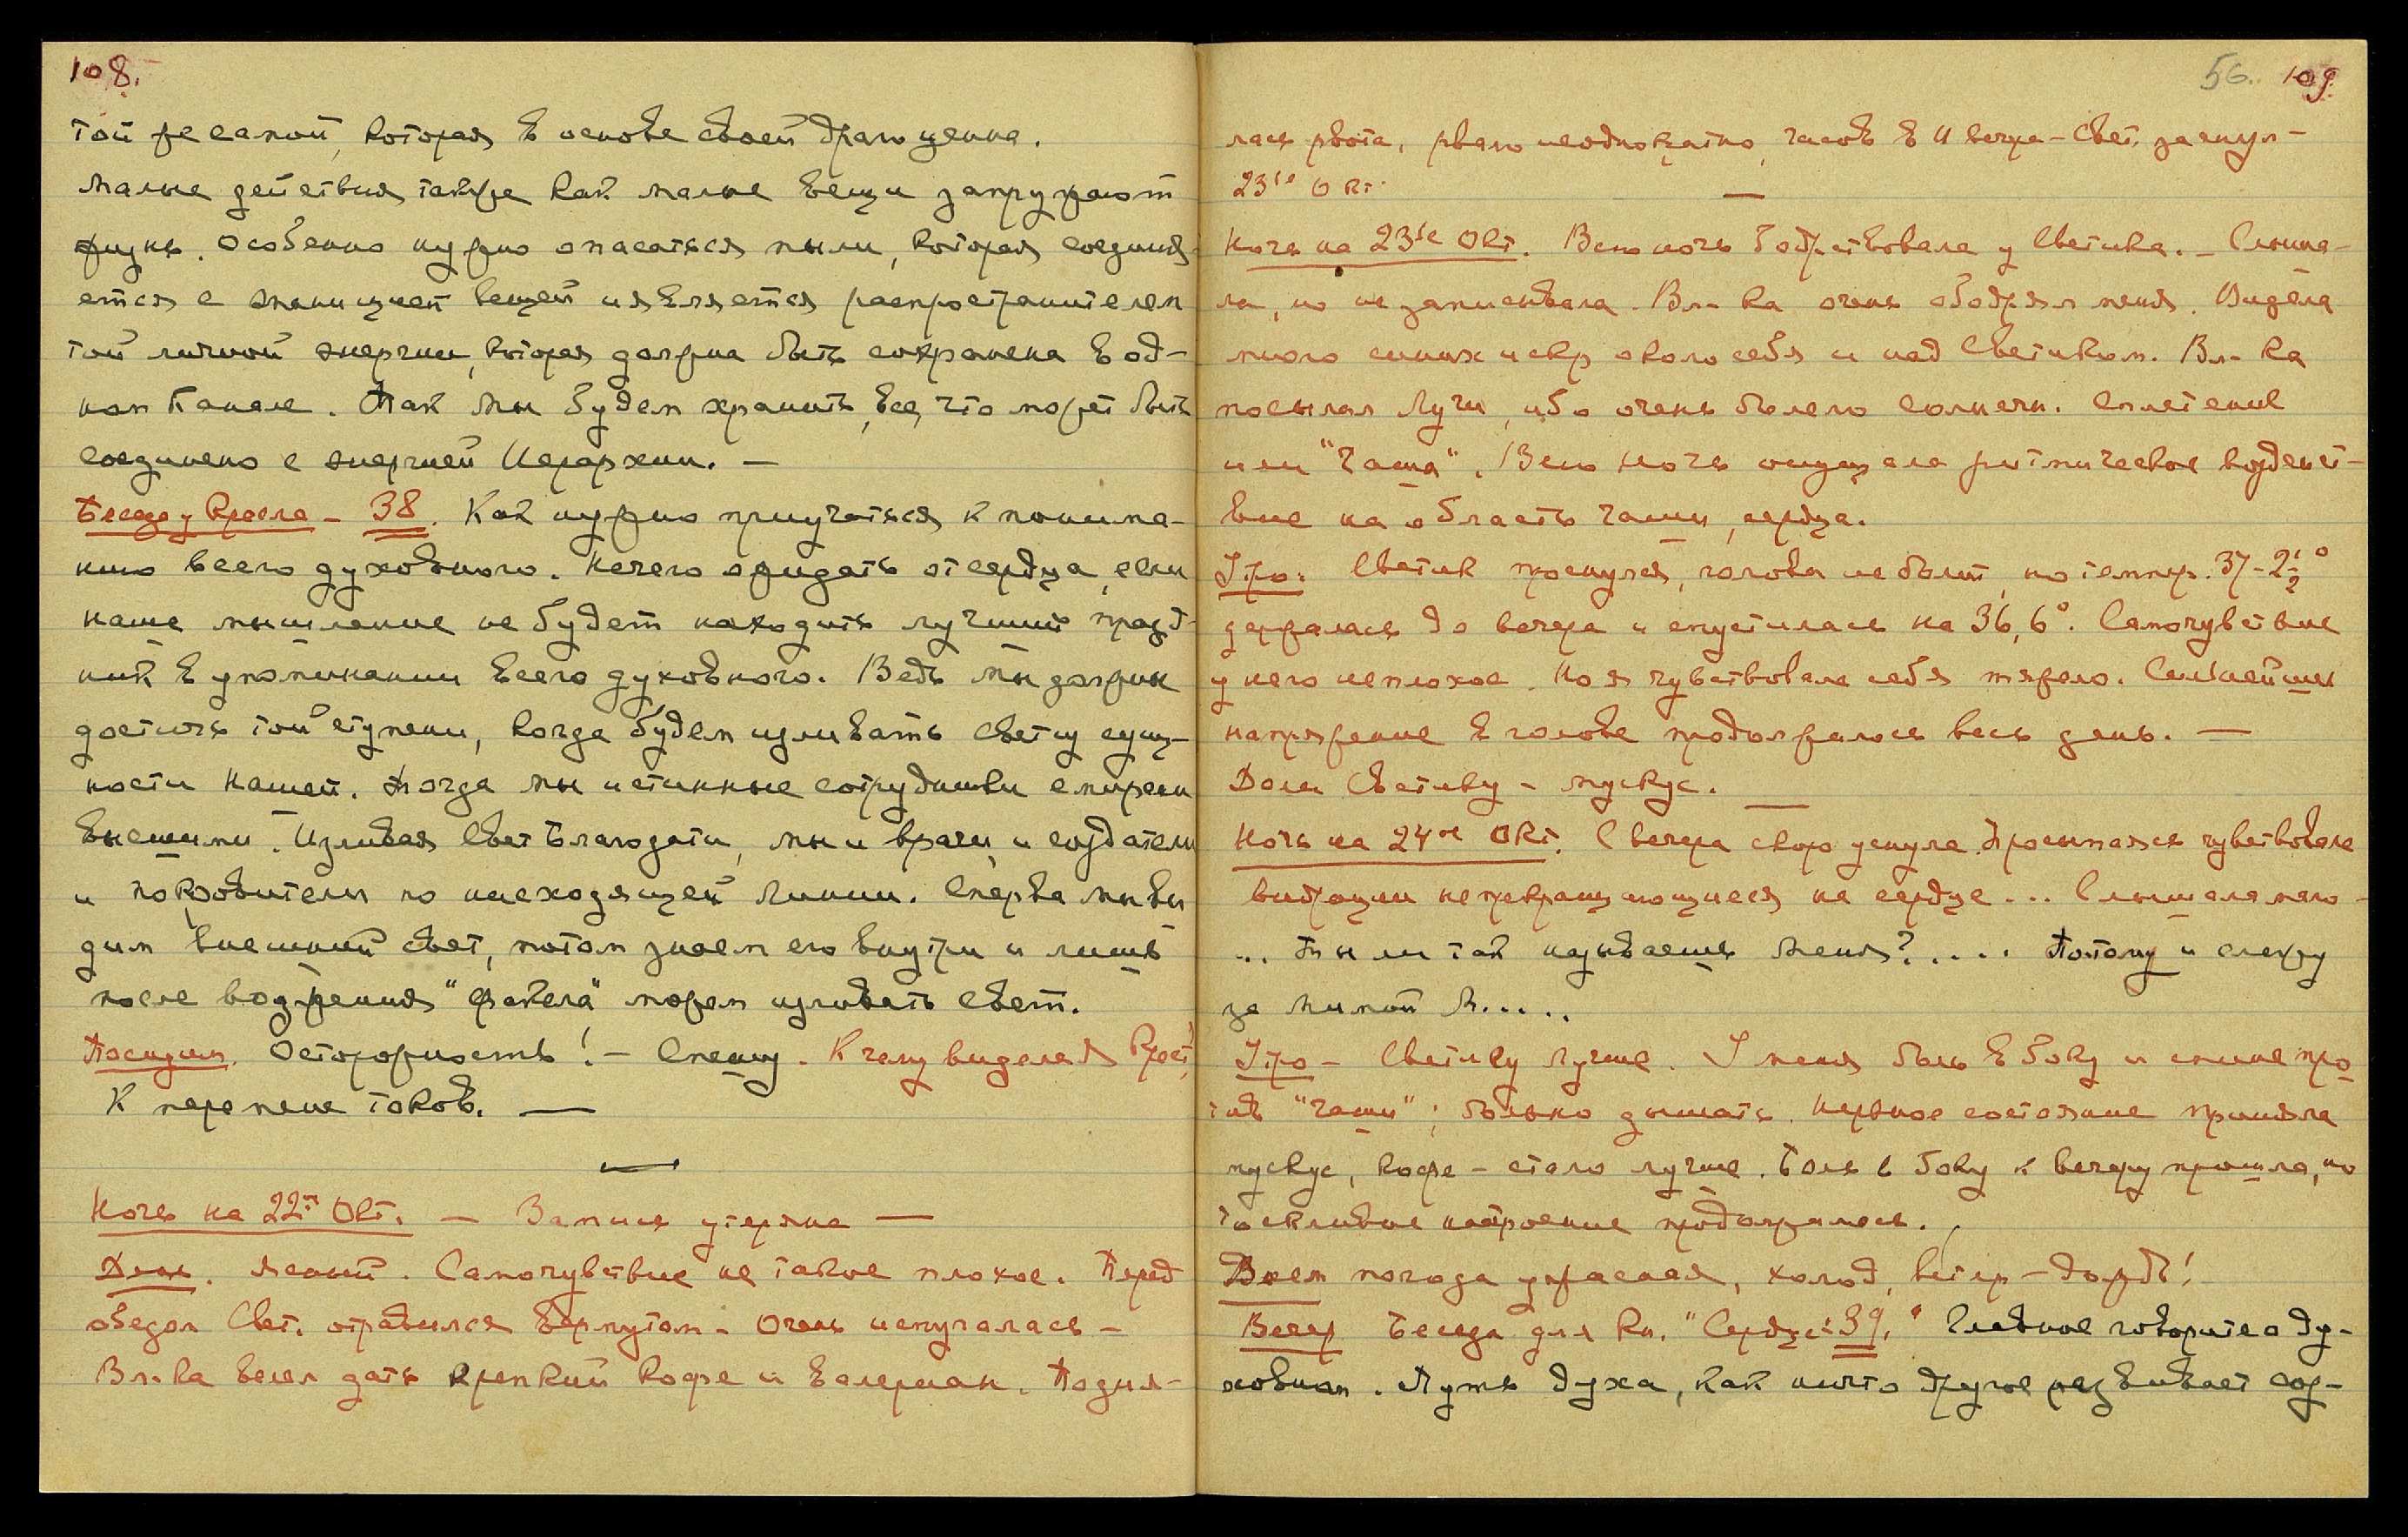 108.
той же самой, которая в основе своей драгоценна.
Малые действия также как малые вещи запружают
жизнь. Особенно нужно опасаться пыли, которая соединя-
ется с эманацией вещей и является распространителем
той личной энергии, которая должна быть сохранена в од-
ном канале. Так мы будем хранить все, что может быть
соединено с энергией Иерархии. —
Беседа у Кресла – 38. Как нужно приучаться к понима-
нию всего духовного. Нечего ожидать от сердца, если
наше мышление не будет находить лучший празд-
ник в упоминании всего духовного. Ведь мы должны
достичь той ступени, когда будем изливать свет из сущ-
ности нашей. Тогда мы истинные сотрудники с мирами
высшими. Изливая Свет Благодати, мы и врачи, и создатели
и покровители по нисходящей линии. Сперва мы ви
дим внешний свет, потом знаем его внутри и лишь
после возжжения "факела" можем изливать свет.
Посидим. Осторожность! – Спешу. К чему видела я Крест,
К перемене токов. —
Ночь на 22ое Окт. — Запись утеряна —
День. Ясный. Самочувствие не такое плохое. Перед
обедом Свет. отравился вермутом – Очень испугалась –
Вл-ка велел дать крепкий кофе и валериан. Подня-
56. 109.
лась рвота, рвало неоднократно, часов в 11 вечера – Свет. заснул –
23ье Окт.
Ночь на 23ье Окт. Всю ночь бодрствовала у Светика. – Слыша-
ла, но не записывала. Вл-ка очень ободрял меня. Видела
много синих искр около себя и над Светиком. Вл-ка
посылал Лучи, ибо очень болело солнечн. сплетение
или "Чаша". Всю ночь ощущала ритмическое воздейст-
вие на область чаши, сердца.
Утро: Светик проснулся, голова не болит, но темпер. 37-2½°
держалась до вечера и опустилась на 36,6°. Самочувствие
у него неплохое. Но я чувствовала себя тяжело. Сильнейшее
напряжение в голове продолжалось весь день. —
Дали Светику – мускус.
Ночь на 24ое Окт. С вечера скоро уснула. Просыпаясь чувствовала
вибрации непрекращающиеся на сердце... Слышала мало –
... Ты ли так называешь меня? .... Потому и слежу
за милой М.....
Утро – Светику лучше. У меня боль в боку и спине про
тив "чаши"; больно дышать. Нервное состояние приняла
мускус, кофе – стало лучше. Боль в боку к вечеру прошла, но
тоскливое настроение продолжалось.
Днем погода ужасная, холод, ветер – дождь!
Вечер Беседа для Кн. "Сердце: 39." Главное говорите о ду-
ховном. Путь духа, как ничто другое развивает соз-